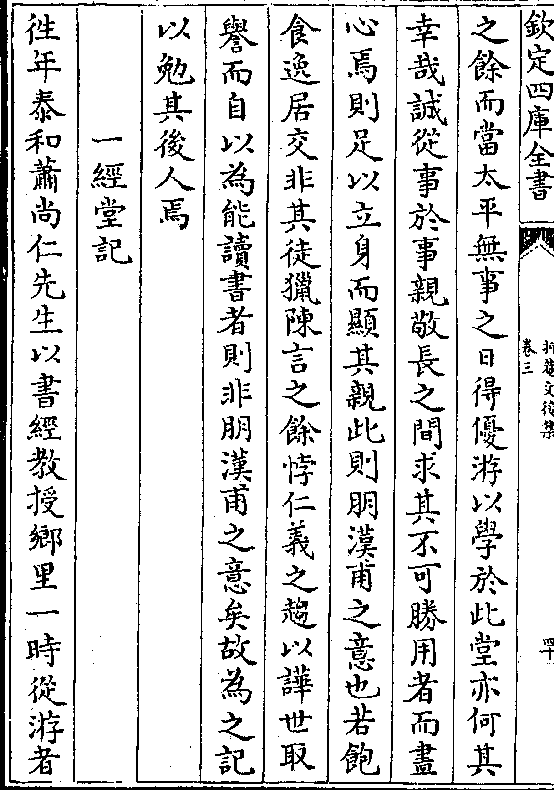 欽定四庫全書
卷三
四十
之餘而當太平無事之日得優游以學於此堂亦何其
幸哉誠從事於事親敬長之間求其不可勝用者而盡
心焉則足以立身而顯其親此則朋漢甫之意也若飽
食逸居交非其徒獵陳言之餘悖仁義之趨以譁世取
譽而自以為能讀書者則非朋漢甫之意矣故為之記
以勉其後人焉
一經堂記
徃年泰和蕭尚仁先生以書經教授鄉里一時從游者